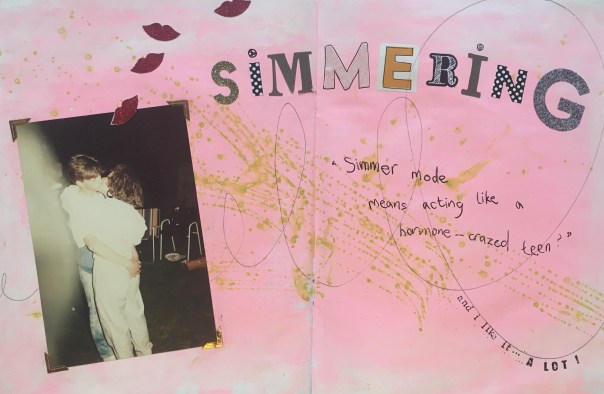 SiMMERiNG
"Simmer mode
means acting like a
hormone-crazed teen?"
and i like it...
A LOT!